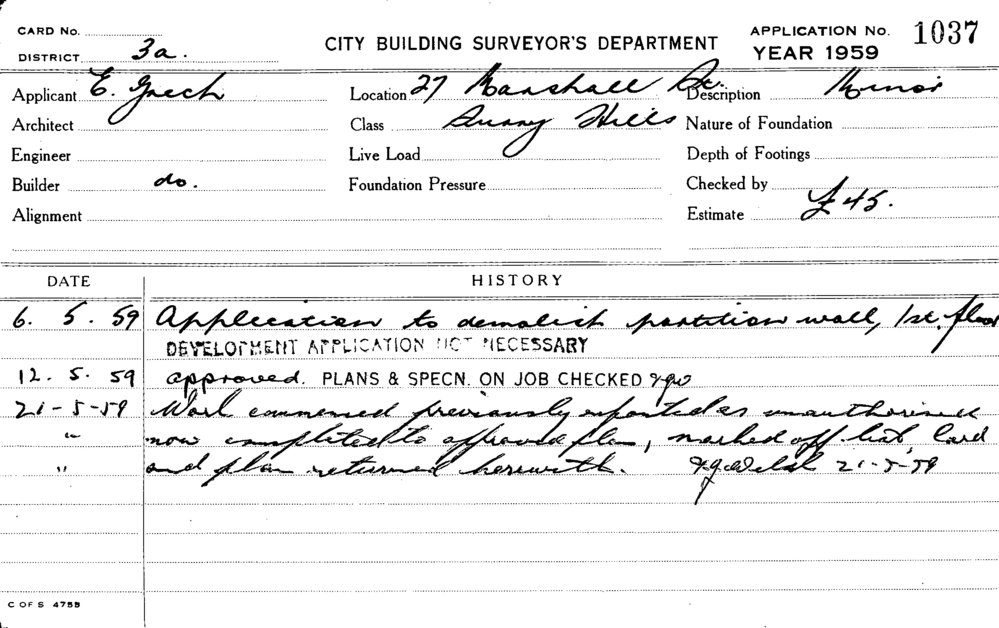 CARD No.
DISTRICT 3a.
CITY BUILDING SURVEYOR'S DEPARTMENT
APPLICATION No. 1037
YEAR 1959
Applicant E. Grech
Location 27 Marshall St.
Description Minor
Architect
Class Surry Hills
Nature of Foundation
Engineer
Live Load
Depth of Footings
Builder do.
Foundation Pressure
Checked by
Alignment
Estimate £45.
DATE
HISTORY
6. 5. 59 Application to demolish partition wall, 1st. floor
DEVELOPMENT APPLICATION NOT NECESSARY
12. 5. 59 approved. PLANS & SPECN. ON JOB CHECKED
21-5-59 Work commenced previously reported as unauthorised
" now completed to approved plan, marked off list card
" and plan returned herewith. 21-5-59
C OF S 4755